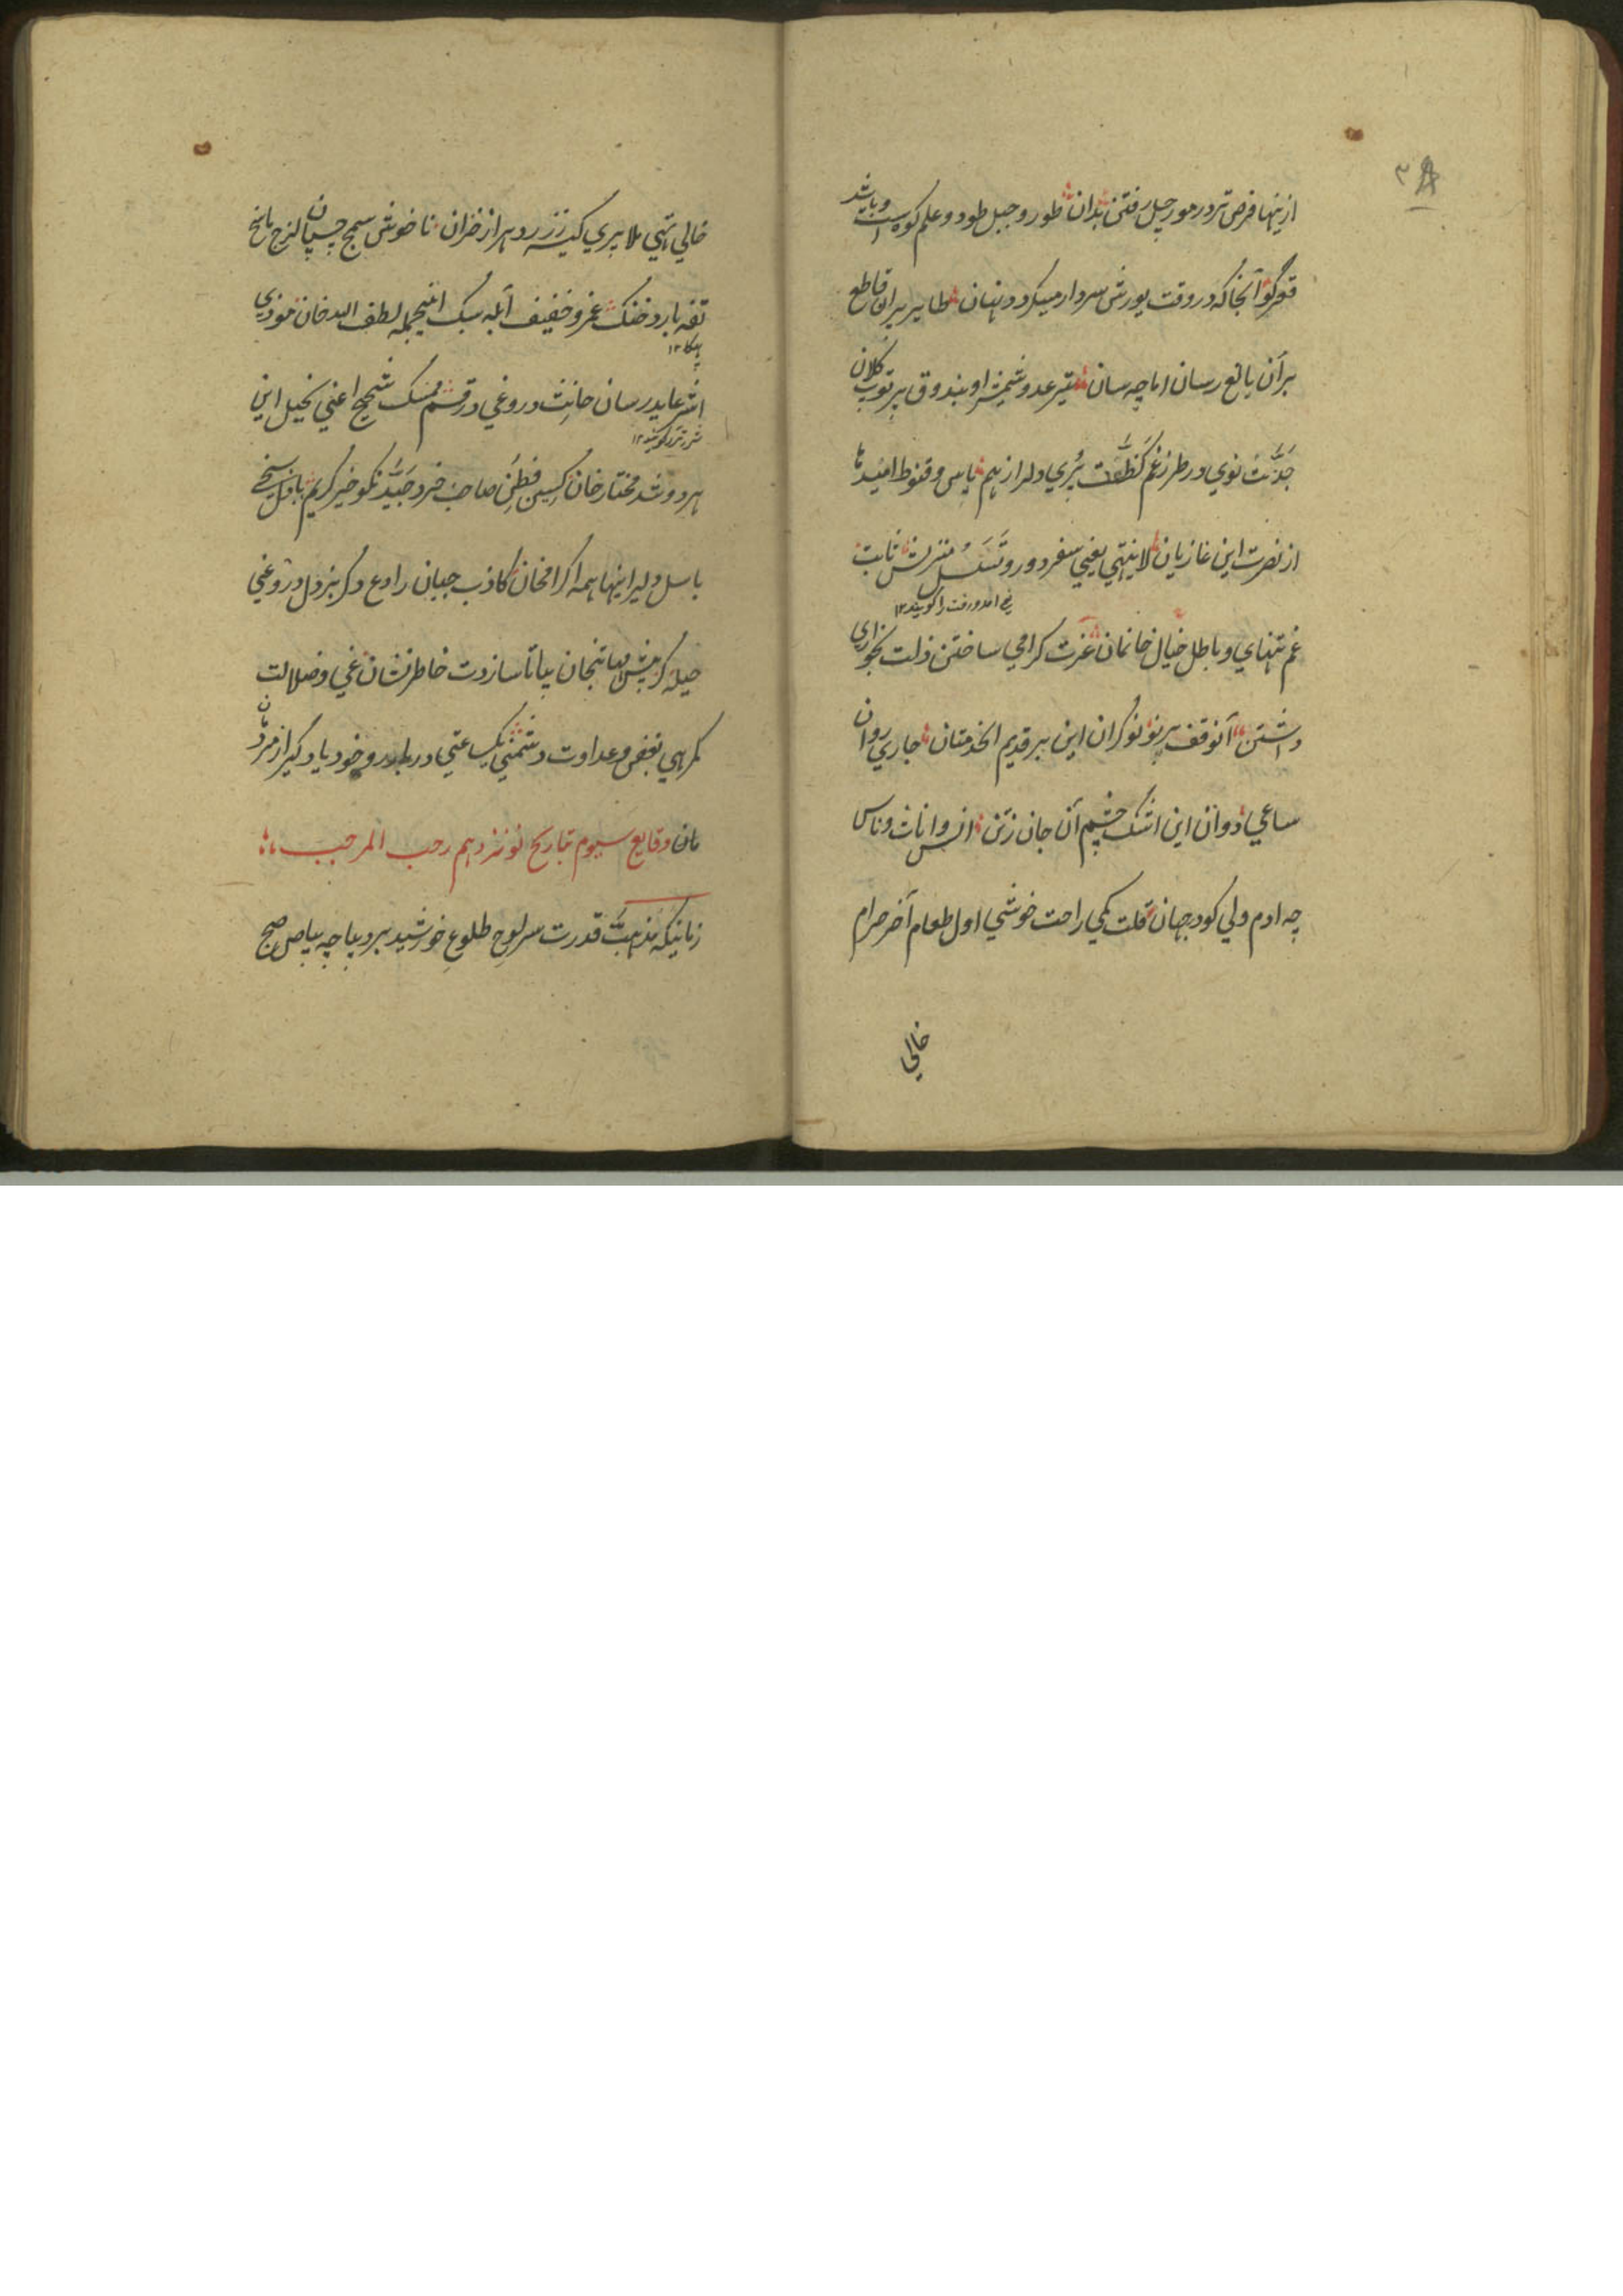 ازینها فرض تردد مورچل رفتن بدان طور و جبل طود و علم کوه است و باشد
قو گو آنجا که در وقت یورش سردار میگردد پنهان طایر پران قاطع
بران بالغ رسان اما چه سان تیر عدو شمشیر او بندوق پر توپ کلان
جدت نوی در طرز غم کظت پری دلرا ز هم یاس و قنوط امید ما
از نصرت این غازیان لاینتهی یعنی سفر دور و تسلسل منزلش ثابت
غم تنهای و باطل خیال خانمان عزت کرامی ساختن ذلت بخواری
داشتن آن وقف بر نو نوکران این بر قدیم الخدمتان جاری روان
ساعی دوان این اشک چشم آن جان ز تن انس و اناث و ناس
چه ادم ولی کو در جهان قلت کمی راحت خوشی اول طعام آخر حرام
خالی
خالی تهی ملا پری کیسه ز زر دهر از خزان ناخوش سمج چسپان لزج
تفه بارد خنک غمر و خفیف ابله سبک اینجمله لطف الله خان موذی
اشر عاید رسان خانث دروغی در قسم ممسک شحیح اعنی بخیل این
هر دو شد مختار خان کیس فطن صاحب خرد جید نکو خیر کریم باذل سخی
باسل دلیر اینها همه اکرامخان کاذب جبان رادع دگر بزدل دروغی
حیله گر پیش میانجان بیاتا سازدت خاطر نشان غی و ضلالت
گمرهی بغض و عداوت دشمنی یک ساعتی در بار رو خود یاد گیر از مردمان
مان وقایع سیوم بتاریخ نوزدهم رجب المرجب
زمانیکه مذهب قدرت سر لوح طلوع خورشید بر دیباچه بیاض صبح